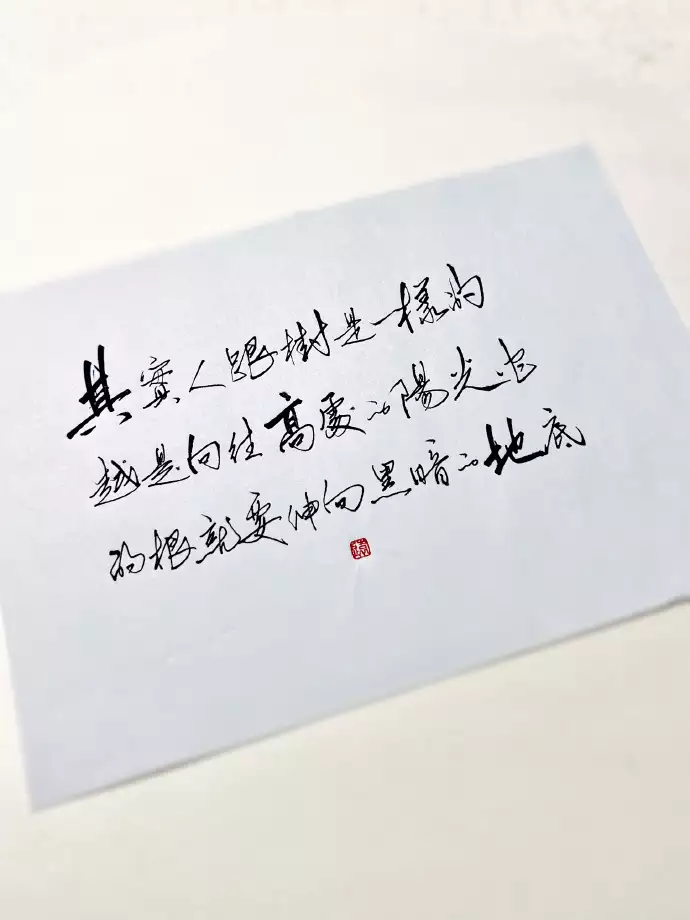 其實人跟樹是一樣的
越是向往高處的陽光它
的根就要伸向黑暗的地底